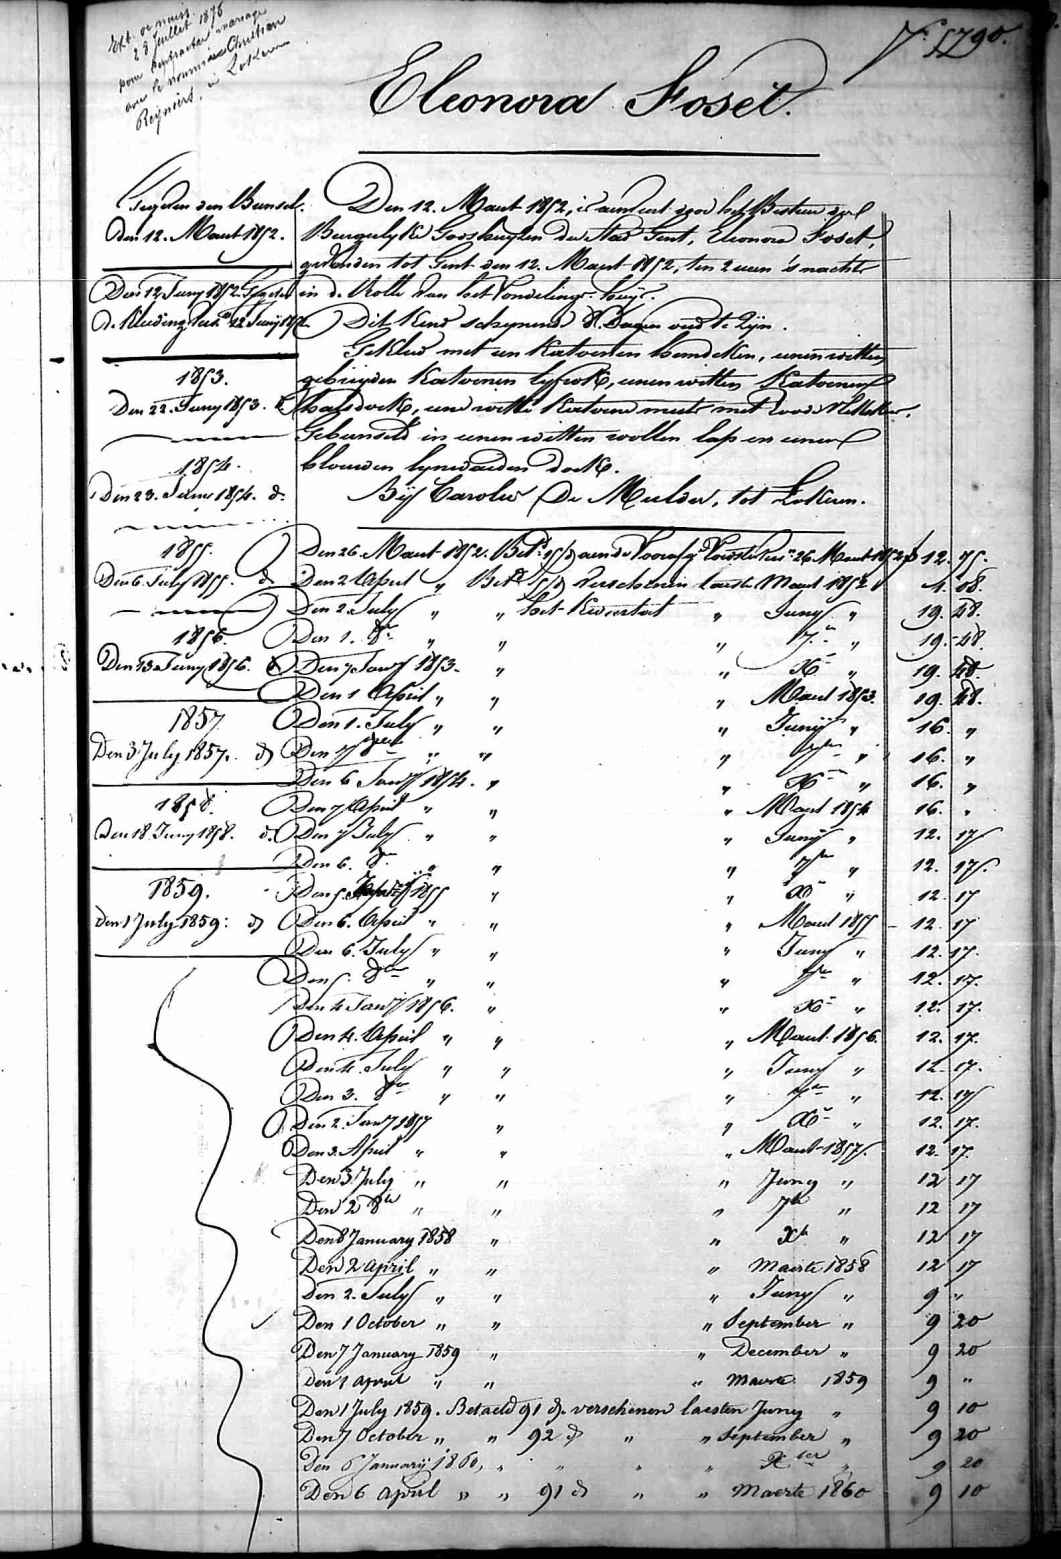 Ext. de naiss.
28 Juillet 1876
pour contracter mariage
avec le nommé Christian
Reyniers, à Lokeren
N.° 1790.
Eleonora Foset.
Gegeven den Bunsel.
Den 12. Maert 1852.
Den 12 Juny 1852.
de Kleeding 12 Junij 1852
1853.
Den 22. Juny 1853. d°
1854.
Den 23. Juny 1854. d°
1855.
Den 6. July 1855. d°
1856.
Den 13 Juny 1856. d°
1857.
Den 3 July 1857. d°
1858.
Den 18 Juny 1858. d°
1859.
Den 1 July 1859. d°
Den 12. Maert 1852, is aenveert door het Bestuer der
Burgerlyke Godshuyzen der Stad Gent, Eleonora Foset,
gevonden tot Gent den 12. Maert 1852, ten 2 uren 's nachts
in de Rolle van het Vondelings-huys.
Dit kind schynende dagen oud te zyn.
Gekleed met een katoenen hemdeken, eenen witten
gebreyden katoenen lyfrok, eenen witten katoenen
halsdoek, eene witte katoene muts met
Gebunseld in eenen witten wollen lap en eenen
blauwen lynwaeden doek.
Bij Carolus De Mulder, tot Lokeren.
Den 26. Maert 1852. Bet.d aen de 26 Maert 1852 12. 75.
Den 2 April " Bet.d verschenen laeste Maert 1852 1. 08.
Den 2. July " " het kwartaal " Juny " 19. 48.
Den 1. 8.re " " " 7.re " 19. 48.
Den 7 Janry 1853. " " X.re " 19. 48.
Den 1 April " " " Maert 1853. 19. 48.
Den 1. July " " " Junij " 16. "
Den 7 8.re " " " 7.re " 16. "
Den 6 Janry 1854. " " X.re " 16. "
Den 7 April " " " Maert 1854 16. "
Den 7 July " " " Junij " 12. 17
Den 6. 8.re " " " 7.re " 12. 17.
Den 5 Janry 1855 " " X.re " 12. 17
Den 6. April " " " Maert 1855 12. 17
Den 6. July " " " Juny " 12. 17.
Den 5. 8.re " " " 7.re " 12. 17.
Den 4 Janry 1856. " " X.re " 12. 17.
Den 4. April " " " Maert 1856. 12. 17.
Den 4. July " " " Juny " 12. 17.
Den 3. 8.re " " " 7.re " 12. 17
Den 2. Janry 1857 " " X.re " 12. 17.
Den 3. April " " " Maert 1857. 12. 17.
Den 3 July " " " Juny " 12 17
Den 2 8.re " " " 7.re " 12 17
Den 8 January 1858 " " X.re " 12 17
Den 2 april " " " maerte 1858 12 17
Den 2. July " " " Juny " 9 "
Den 1 October " " " September " 9 20
Den 7 January 1859 " " December " 9 20
Den 1 april " " " maerte 1859 9 "
Den 1 July 1859. Betaeld 91 d. verschenen laesten Juny " 9 10
Den 7 October " " 92 d " " September " 9 20
Den 6 Januarij 1860, " " " " X.ber " 9 20
Den 6 april " " 91 d " " maerte 1860 9 10